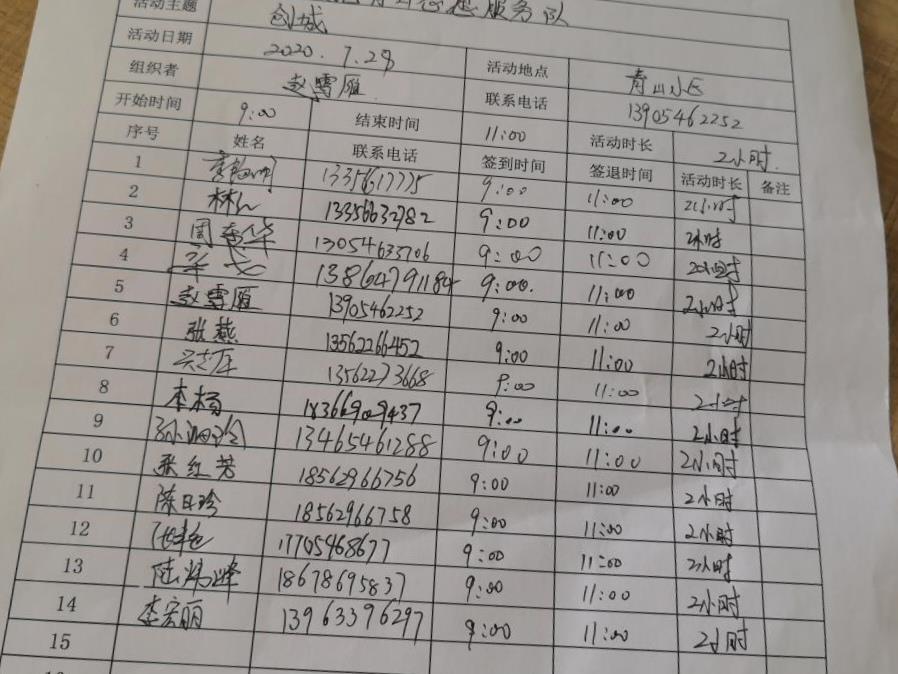 服务队
活动主题 创城
活动日期 2020.7.28 活动地点 青山小区
组织者 赵雪雁 联系电话 13905462252
开始时间 9:00 结束时间 11:00 活动时长 2小时.
序号 姓名 联系电话 签到时间 签退时间 活动时长 备注
1 1335617775 9:00 11:00 2小时
2 13356632782 9:00 11:00 2小时
3 周秀华 13054633706 9:00 11:00 2小时
4 13864791184 9:00. 11:00 2小时
5 赵雪雁 13905462252 9:00 11:00 2小时
6 张燕 13562266452 9:00 11:00 2小时
7 13562273668 9:00 11:00 2小时
8 李杨 18366909437 9:00 11:00 2小时
9 13465461288 9:00 11:00 2小时
10 张红芳 18562966756 9:00 11:00 2小时
11 陈日玲 18562966758 9:00 11:00 2小时
12 17705468677 9:00 11:00 2小时
13 陆炜峰 18678695837 9:00 11:00 2小时
14 李宏丽 13963396297 9:00 11:00 2小时
15